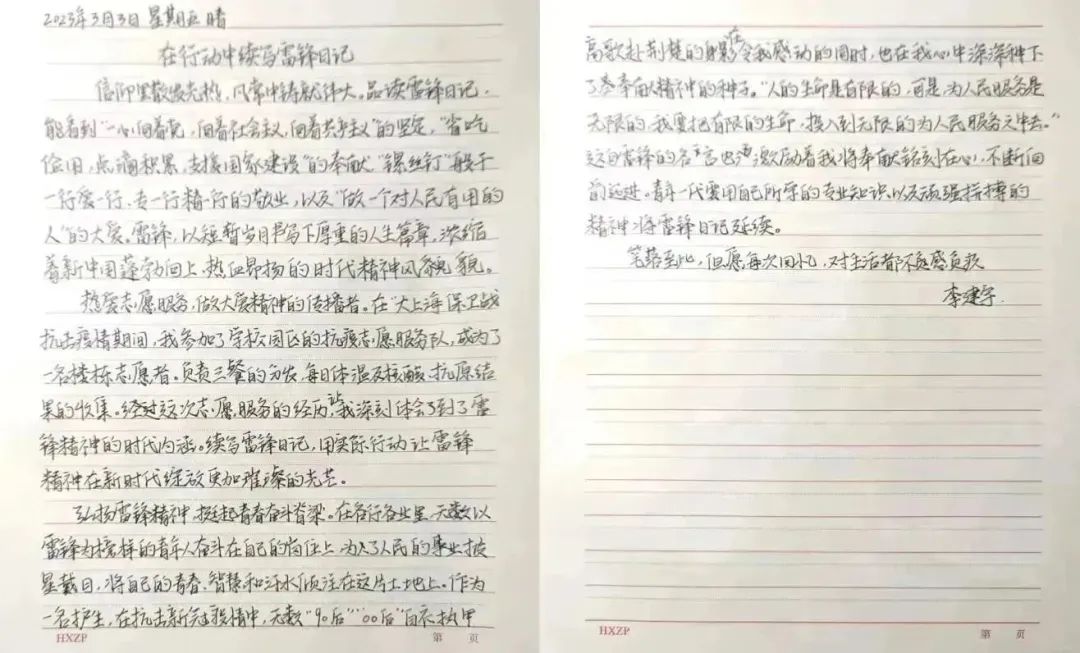 2023年3月3日 星期五 晴
在行动中续写雷锋日记
信仰里散发光热，风常中铸就伟大。品读雷锋日记，
能看到“一心向着党，向着社会主义，向着共产主义”的坚定，“省吃
俭用，点滴积累，支援国家建设”的奉献“螺丝钉”般干
一行爱一行、专一行精一行的敬业，以及“做一个对人民有用的
人”的大爱。雷锋，以短暂岁月书写下厚重的人生篇章，浓缩
着新中国蓬勃向上、热血昂扬的时代精神风貌貌。
热爱志愿服务，做大爱精神的传播者。在“大上海保卫战
抗击疫情期间，我参加了学校园区的抗疫志愿服务队，成为了
一名楼栋志愿者。负责三餐的分发、每日体温及核酸、抗原结
果的收集。经过这次志愿服务的经历，让我深刻体会了到了雷
锋精神的时代内涵。续写雷锋日记，用实际行动让雷锋
精神在新时代绽放更加璀璨的光芒。
弘扬雷锋精神，挺起青春奋斗脊梁。在各行各业里，无数以
雷锋为榜样的青年人奋斗在自己的岗位上，为了人民的事业披
星戴月，将自己的青春、智慧和汗水倾注在这片土地上。作为
一名护生，在抗击新冠疫情中，无数“90后”“00后”白衣执甲
HXZP 第 页
高歌赴荆楚的身影在令我感动的同时，也在我心中深深种下
了奉献精神的种子。“人的生命是有限的，可是，为人民服务是
无限的，我要把有限的生命，投入到无限的为人民服务之中去。”
这句雷锋的名言也激励着我将奉献铭刻在心，不断向
前迈进。青年一代要用自己所学的专业知识以及顽强拼搏的
精神，将雷锋日记延续。
笔落至此，但愿每次回忆，对生活都不感负疚
李建宇.
HXZP 第 页